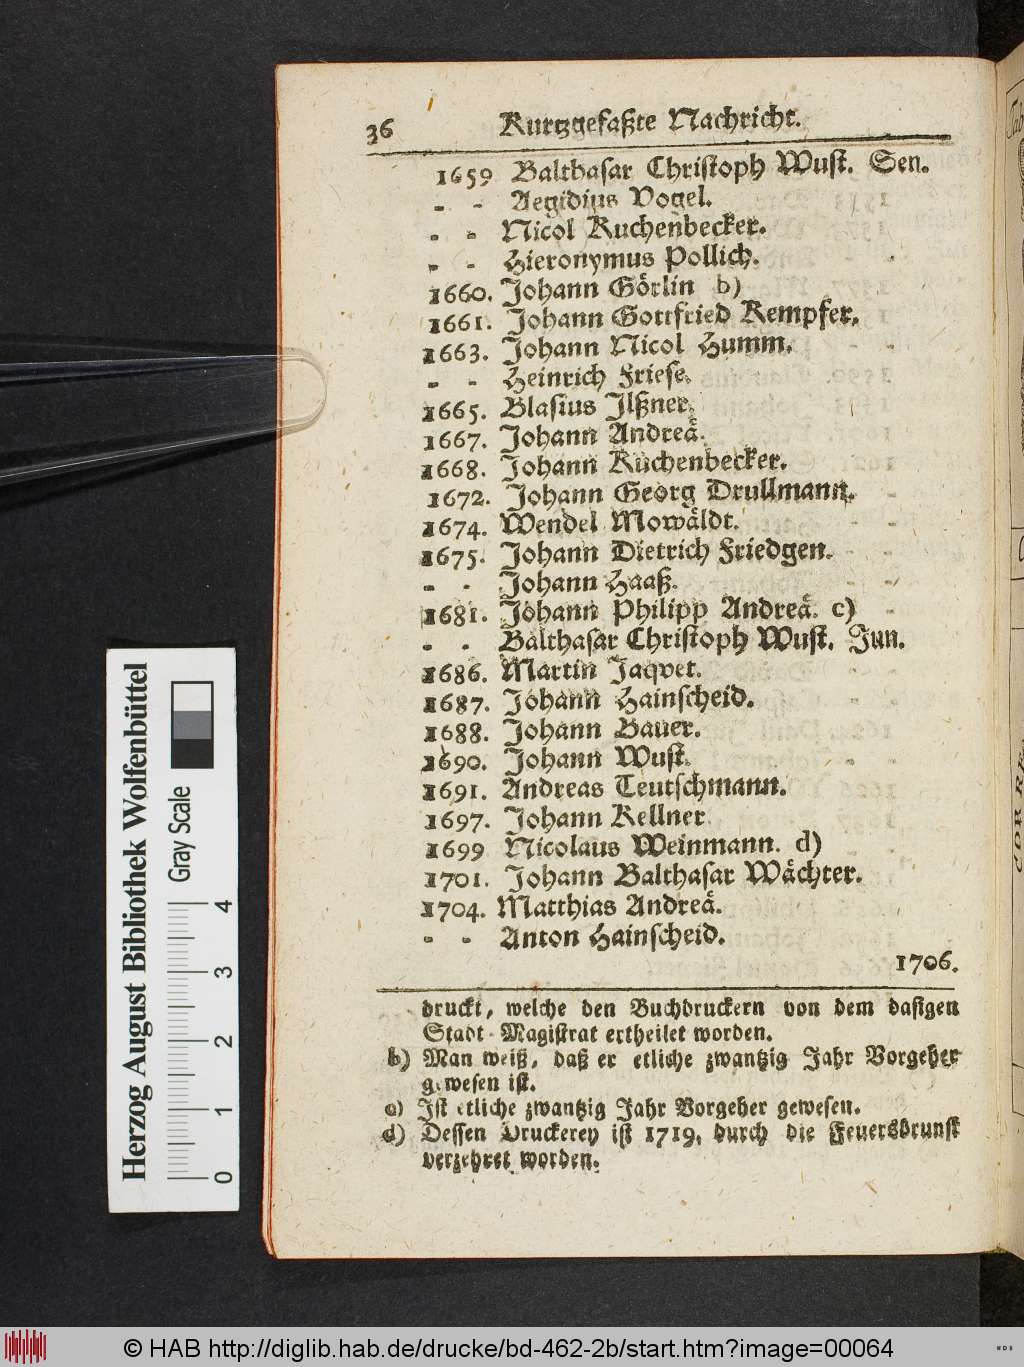 36 Kurtzgefaßte Nachricht.
1659 Balthasar Christoph Wust. Sen.
- - Aegidius Vogel.
- - Nicol Kuchenbecker.
- - Hieronymus Pollich.
1660. Johann Görlin b)
1661. Johann Gottfried Kempfer.
1663. Johann Nicol Humm.
- - Heinrich Friese.
1665. Blasius Ilßner.
1667. Johann Andreä.
1668. Johann Kuchenbecker.
1672. Johann Georg Drullmann.
1674. Wendel Mowäldt.
1675. Johann Dietrich Friedgen.
- - Johann Haaß.
1681. Johann Philipp Andreä. c)
- - Balthasar Christoph Wust. Jun.
1686. Martin Jaqvet.
1687. Johann Hainscheid.
1688. Johann Bauer.
1690. Johann Wust.
1691. Andreas Teutschmann.
1697. Johann Kellner
1699 Nicolaus Weinmann. d)
1701. Johann Balthasar Wächter.
1704. Matthias Andreä.
- - Anton Hainscheid.
1706.
druckt, welche den Buchdruckern von dem dasigen
Stadt-Magistrat ertheilet worden.
b) Man weiß, daß er etliche zwantzig Jahr Vorgeher
gewesen ist.
c) Ist etliche zwantzig Jahr Vorgeher gewesen.
d) Dessen Druckerey ist 1719. durch die Feuersbrunst
verzehret worden.
Herzog August Bibliothek Wolfenbüttel
Gray Scale
0 1 2 3 4
© HAB http://diglib.hab.de/drucke/bd-462-2b/start.htm?image=00064